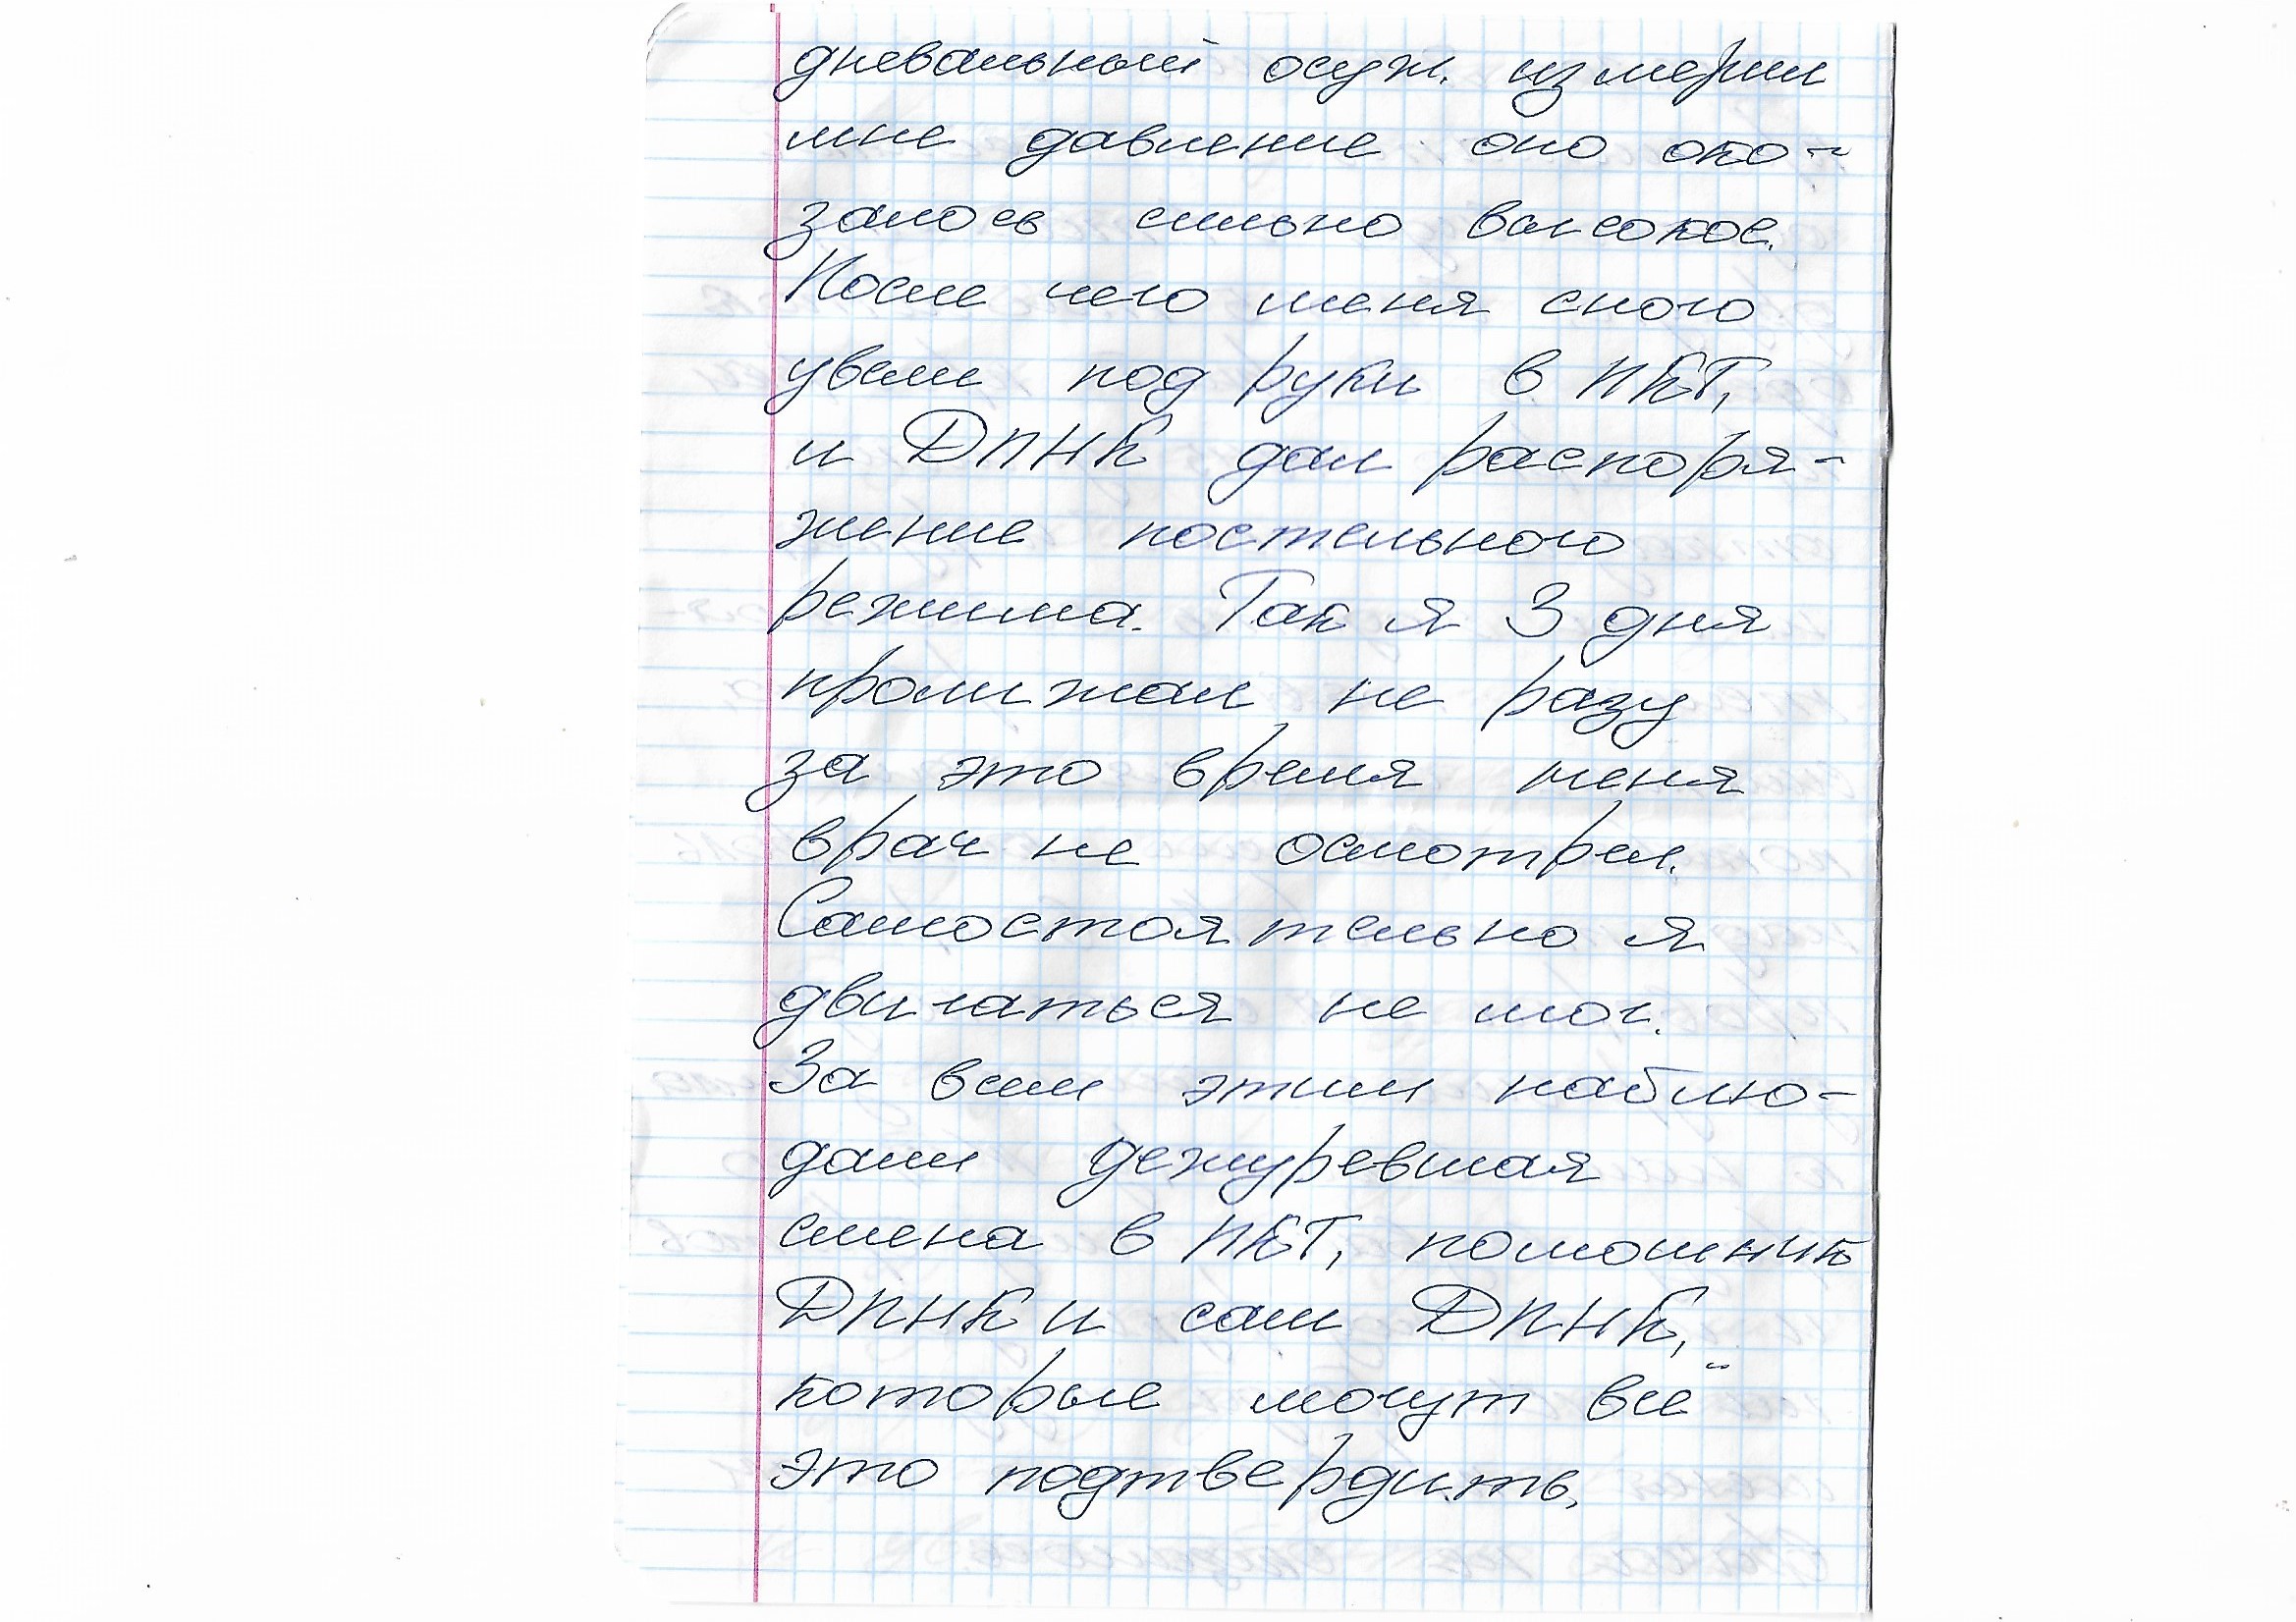 дневальный осуж. измерил
мне давление оно ока-
залось сильно высокое.
После чего меня снова
увели под руки в ПКТ,
и ДПНК дал распоря-
жение постельного
режима. Так я 3 дня
пролижал не разу
за это время меня
врач не осмотрел.
Самостоятельно я
двигаться не мог.
За всем этим наблю-
дали дежуревшая
смена в ПКТ, помошник
ДПНК и сам ДПНК,
которые могут всё
это подтвердить.